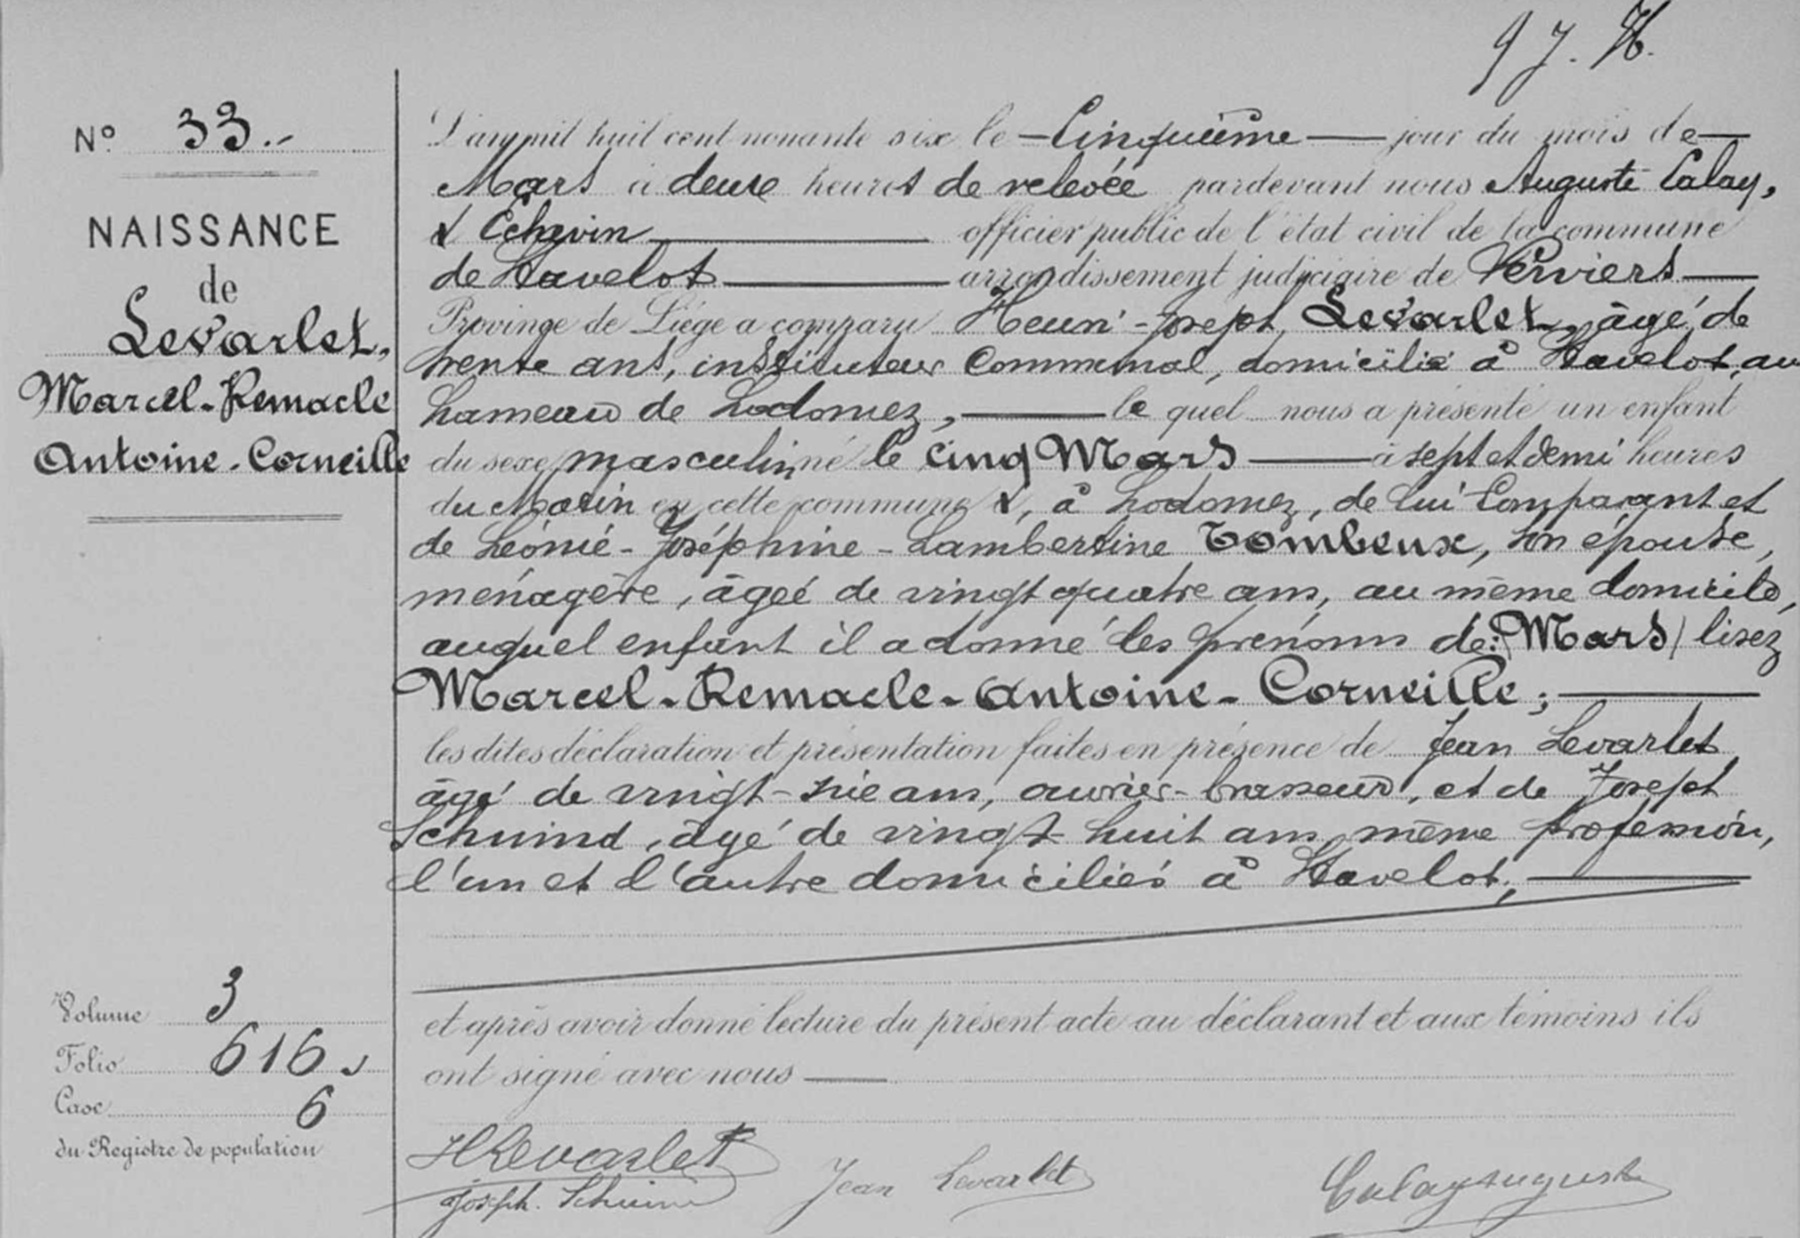 9 J. H.
N° 33.-
NAISSANCE
de
Levarlet,
Marcel-Remacle
Antoine-Corneille
L'an mil huit cent nonante six le — Cinquième — jour du mois de —
Mars à deux heures de relevée pardevant nous Auguste Calay,
Echevin — officier public de l'état civil de la commune
de Stavelot — arrondissement judiciaire de Verviers —
Province de Liége a comparu Henri-Joseph Levarlet, âgé de
trente ans, instituteur communal, domicilié à Stavelot, au
hameau de Lodomez, — le quel nous a présenté un enfant
du sexe masculin né le cinq Mars — à sept et demi heures
du Matin en cette commune, à Lodomez, de lui Comparant et
de Léonie-Joséphine-Lambertine Tombeux, son épouse,
ménagère, âgée de vingt quatre ans, au même domicile,
auquel enfant il a donné les prénoms de: (Mars) lisez
Marcel-Remacle-Antoine-Corneille; —
les dites déclaration et présentation faites en présence de Jean Levarlet
âgé de vingt-six ans, ouvrier-brasseur, et de Joseph
Schuind, âgé de vingt-huit ans, même profession,
l'un et l'autre domiciliés à Stavelot; —
et après avoir donné lecture du présent acte au déclarant et aux témoins ils
ont signé avec nous —
Volume 3
Folio 616
Case 6
du Registre de population
HLevarlet
Joseph. Schuind
Jean Levarlet
Calay Auguste